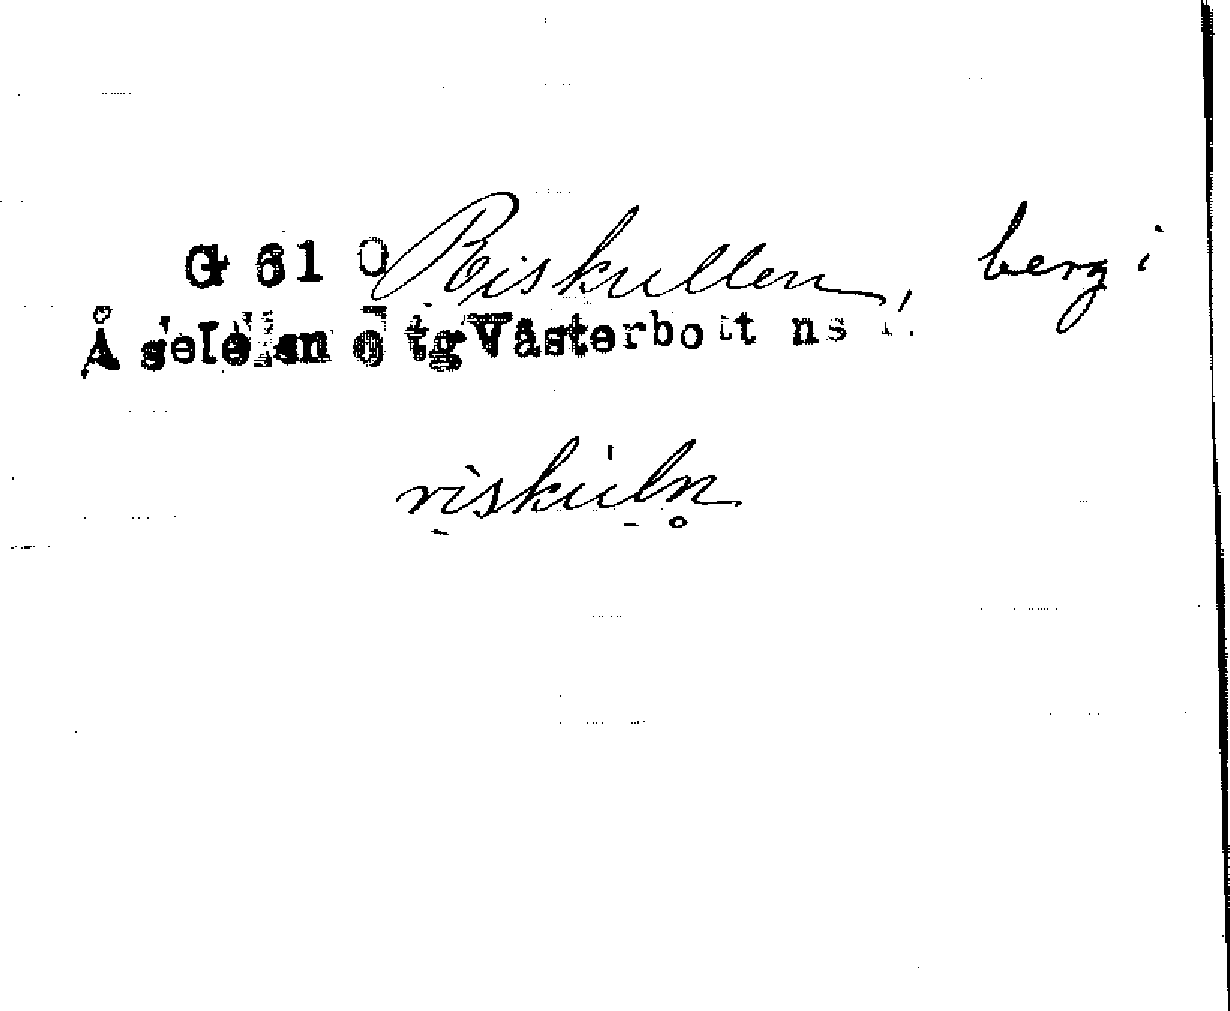 G 61 Riskullen, berg i
Åsele Västerbottns l.
riskuln